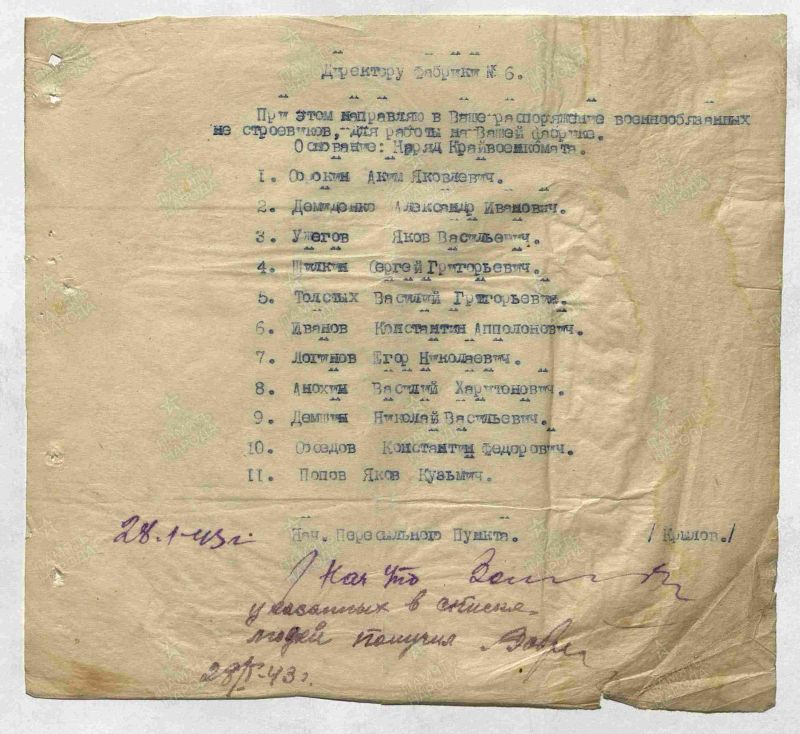 Директору Фабрики № 6.
При этом направляю в Ваше распоряжение военнообязанных
не строевиков, для работы на Вашей фабрике.
Основание: Наряд Крайвоенкомата.
1. Сорокин Аким Яковлевич.
2. Демиденко Александр Иванович.
3. Ужегов Яков Васильевич.
4. Шилкин Сергей Григорьевич.
5. Толстых Василий Григорьевич.
6. Иванов Константин Апполонович.
7. Логинов Егор Николаевич.
8. Анохин Василий Харитонович.
9. Демшин Николай Васильевич.
10. Соседов Константин Федорович.
11. Попов Яков Кузьмич.
28.1-43г. Нач. Пересыльного Пункта. /Крылов./
указанных в списке
людей получил
28/I-43г.